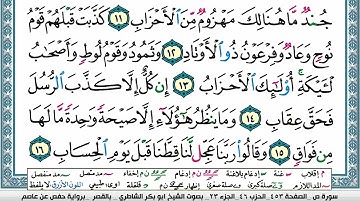 جُندٌ مَّا هُنَالِكَ مَهْزُومٌ مِّنَ ٱلْأَحْزَابِ ١١ كَذَّبَتْ قَبْلَهُمْ قَوْمُ
نُوحٍ وَعَادٌ وَفِرْعَوْنُ ذُو ٱلْأَوْتَادِ ١٢ وَثَمُودُ وَقَوْمُ لُوطٍ وَأَصْحَٰبُ
لْـَٔيْكَةِ أُو۟لَٰٓئِكَ ٱلْأَحْزَابُ ١٣ إِن كُلٌّ إِلَّا كَذَّبَ ٱلرُّسُلَ
فَحَقَّ عِقَابِ ١٤ وَمَا يَنظُرُ هَٰٓؤُلَآءِ إِلَّا صَيْحَةً وَٰحِدَةً مَّا لَهَا
مِن فَوَاقٍ ١٥ وَقَالُوا۟ رَبَّنَا عَجِّل لَّنَا قِطَّنَا قَبْلَ يَوْمِ ٱلْحِسَابِ ١٦
سورة ص الصفحة ٤٥٣ الحزب ٤٦ الجزء ٢٣ بصوت الشيخ ابو بكر الشاطري بالقصر برواية حفص عن عاصم